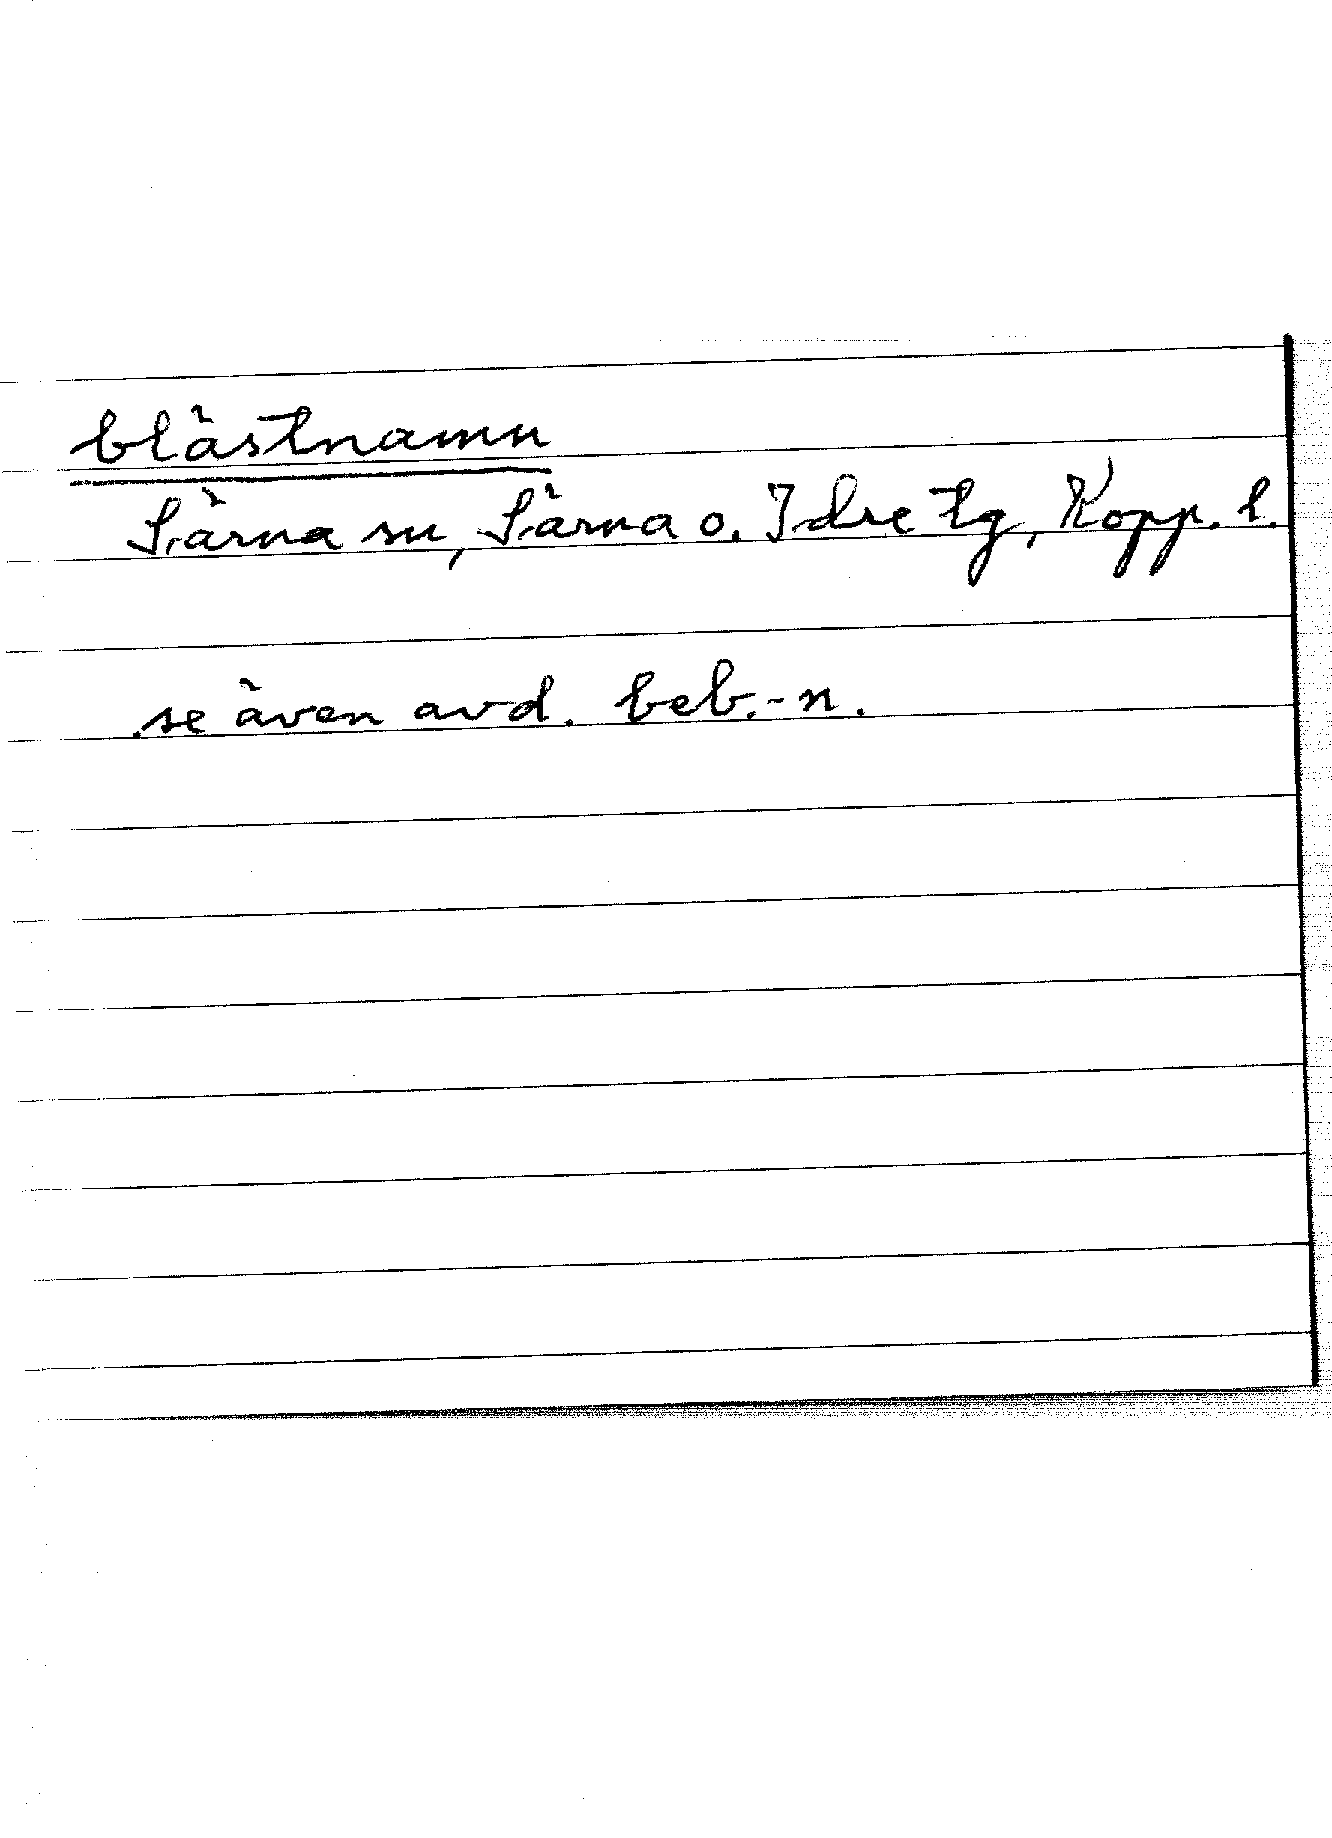 blästnamn
Särna sn, Särna o. Idre tg, Kopp. l.
se även avd. beb.-n.